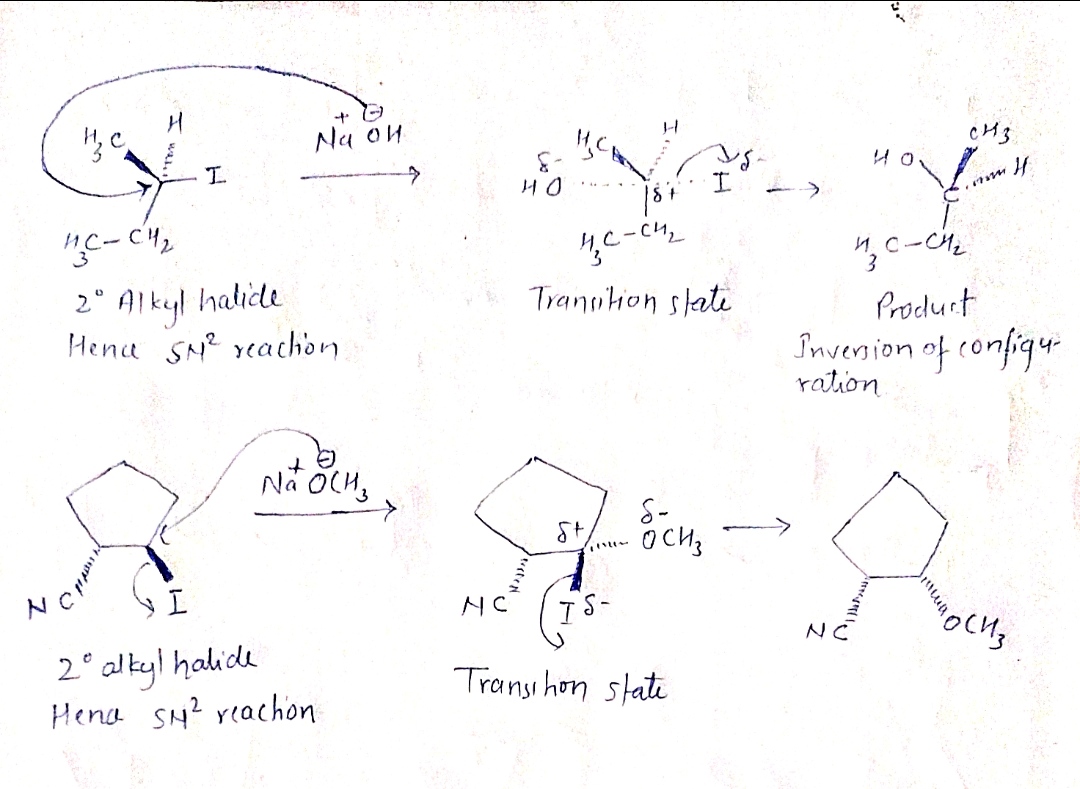 H
H₃C
I
H₃C-CH₂
+ ⊖
Na OH
2° Alkyl halide
Hence SN² reaction
H₃C H
δ- δ-
HO I
δ+
H₃C-CH₂
Transition state
CH₃
HO H
C
H₃C-CH₂
Product
Inversion of configu-
ration
+ ⊖
Na OCH₃
NC
I
2° alkyl halide
Hence SN² reaction
δ+ δ-
OCH₃
NC I δ-
Transition state
NC OCH₃